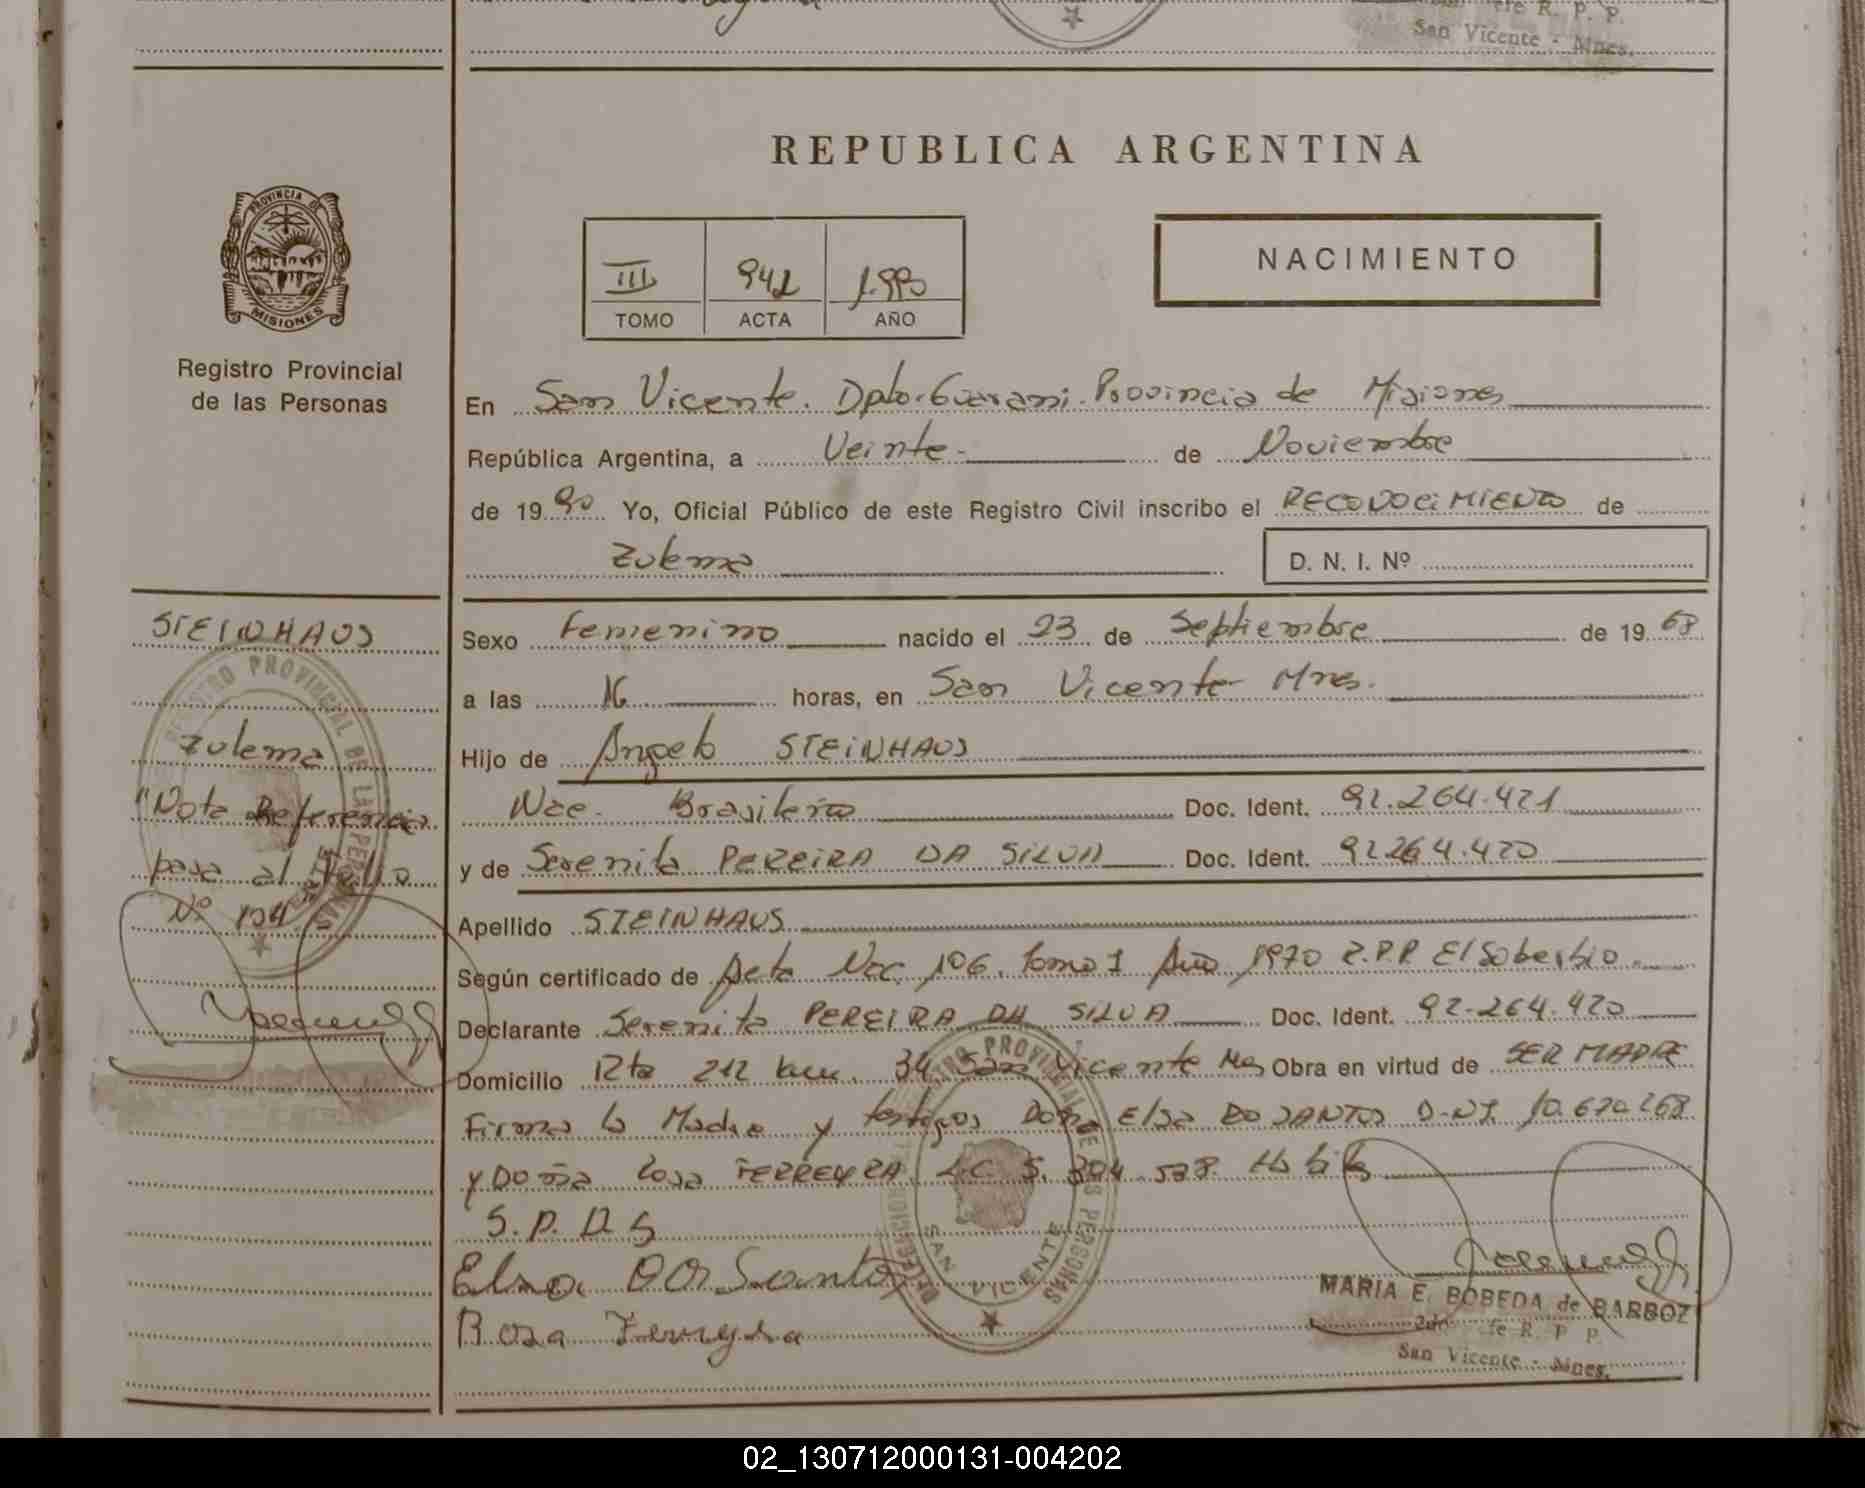 San Vicente - Mnes.
REPUBLICA ARGENTINA
PROVINCIA DE
MISIONES
Registro Provincial
de las Personas
III 942 1.990
TOMO ACTA AÑO
NACIMIENTO
En San Vicente. Dpto. Guarani. Provincia de Misiones
República Argentina, a Veinte.- de Noviembre
de 1990 Yo, Oficial Público de este Registro Civil inscribo el RECONOCIMIENTO de
Zulema D. N. I. Nº
STEINHAUS
Zulema
"Nota Referencia
pasa al folio
Nº 134
Sexo Femenino nacido el 23 de Septiembre de 1968
a las 16 horas, en San Vicente Mnes.
Hijo de Angelo STEINHAUS
Nac. Brasilero Doc. Ident. 92.264.421
y de Serenita PEREIRA DA SILVA Doc. Ident. 92.264.420
Apellido STEINHAUS
Según certificado de Acta Nac. 106. Tomo 1 Año 1970 R.P.P. El Soberbio.
Declarante Serenita PEREIRA DA SILVA Doc. Ident. 92.264.420
Domicilio Rta 212 km. 34 San Vicente Mnes Obra en virtud de SER MADRE
Firma la Madre y testigos Doña Elsa DO SANTOS D.N.I. 10.670.268
y DOÑA Rosa FERREYRA L.C. 5. 304.528
S. P. D. S
Elsa DO Santos
Rosa Ferreyra
SAN VICENTE
MARIA E. BOBEDA de BARBOZ
R. P. P.
San Vicente - Mnes.
02_130712000131-004202